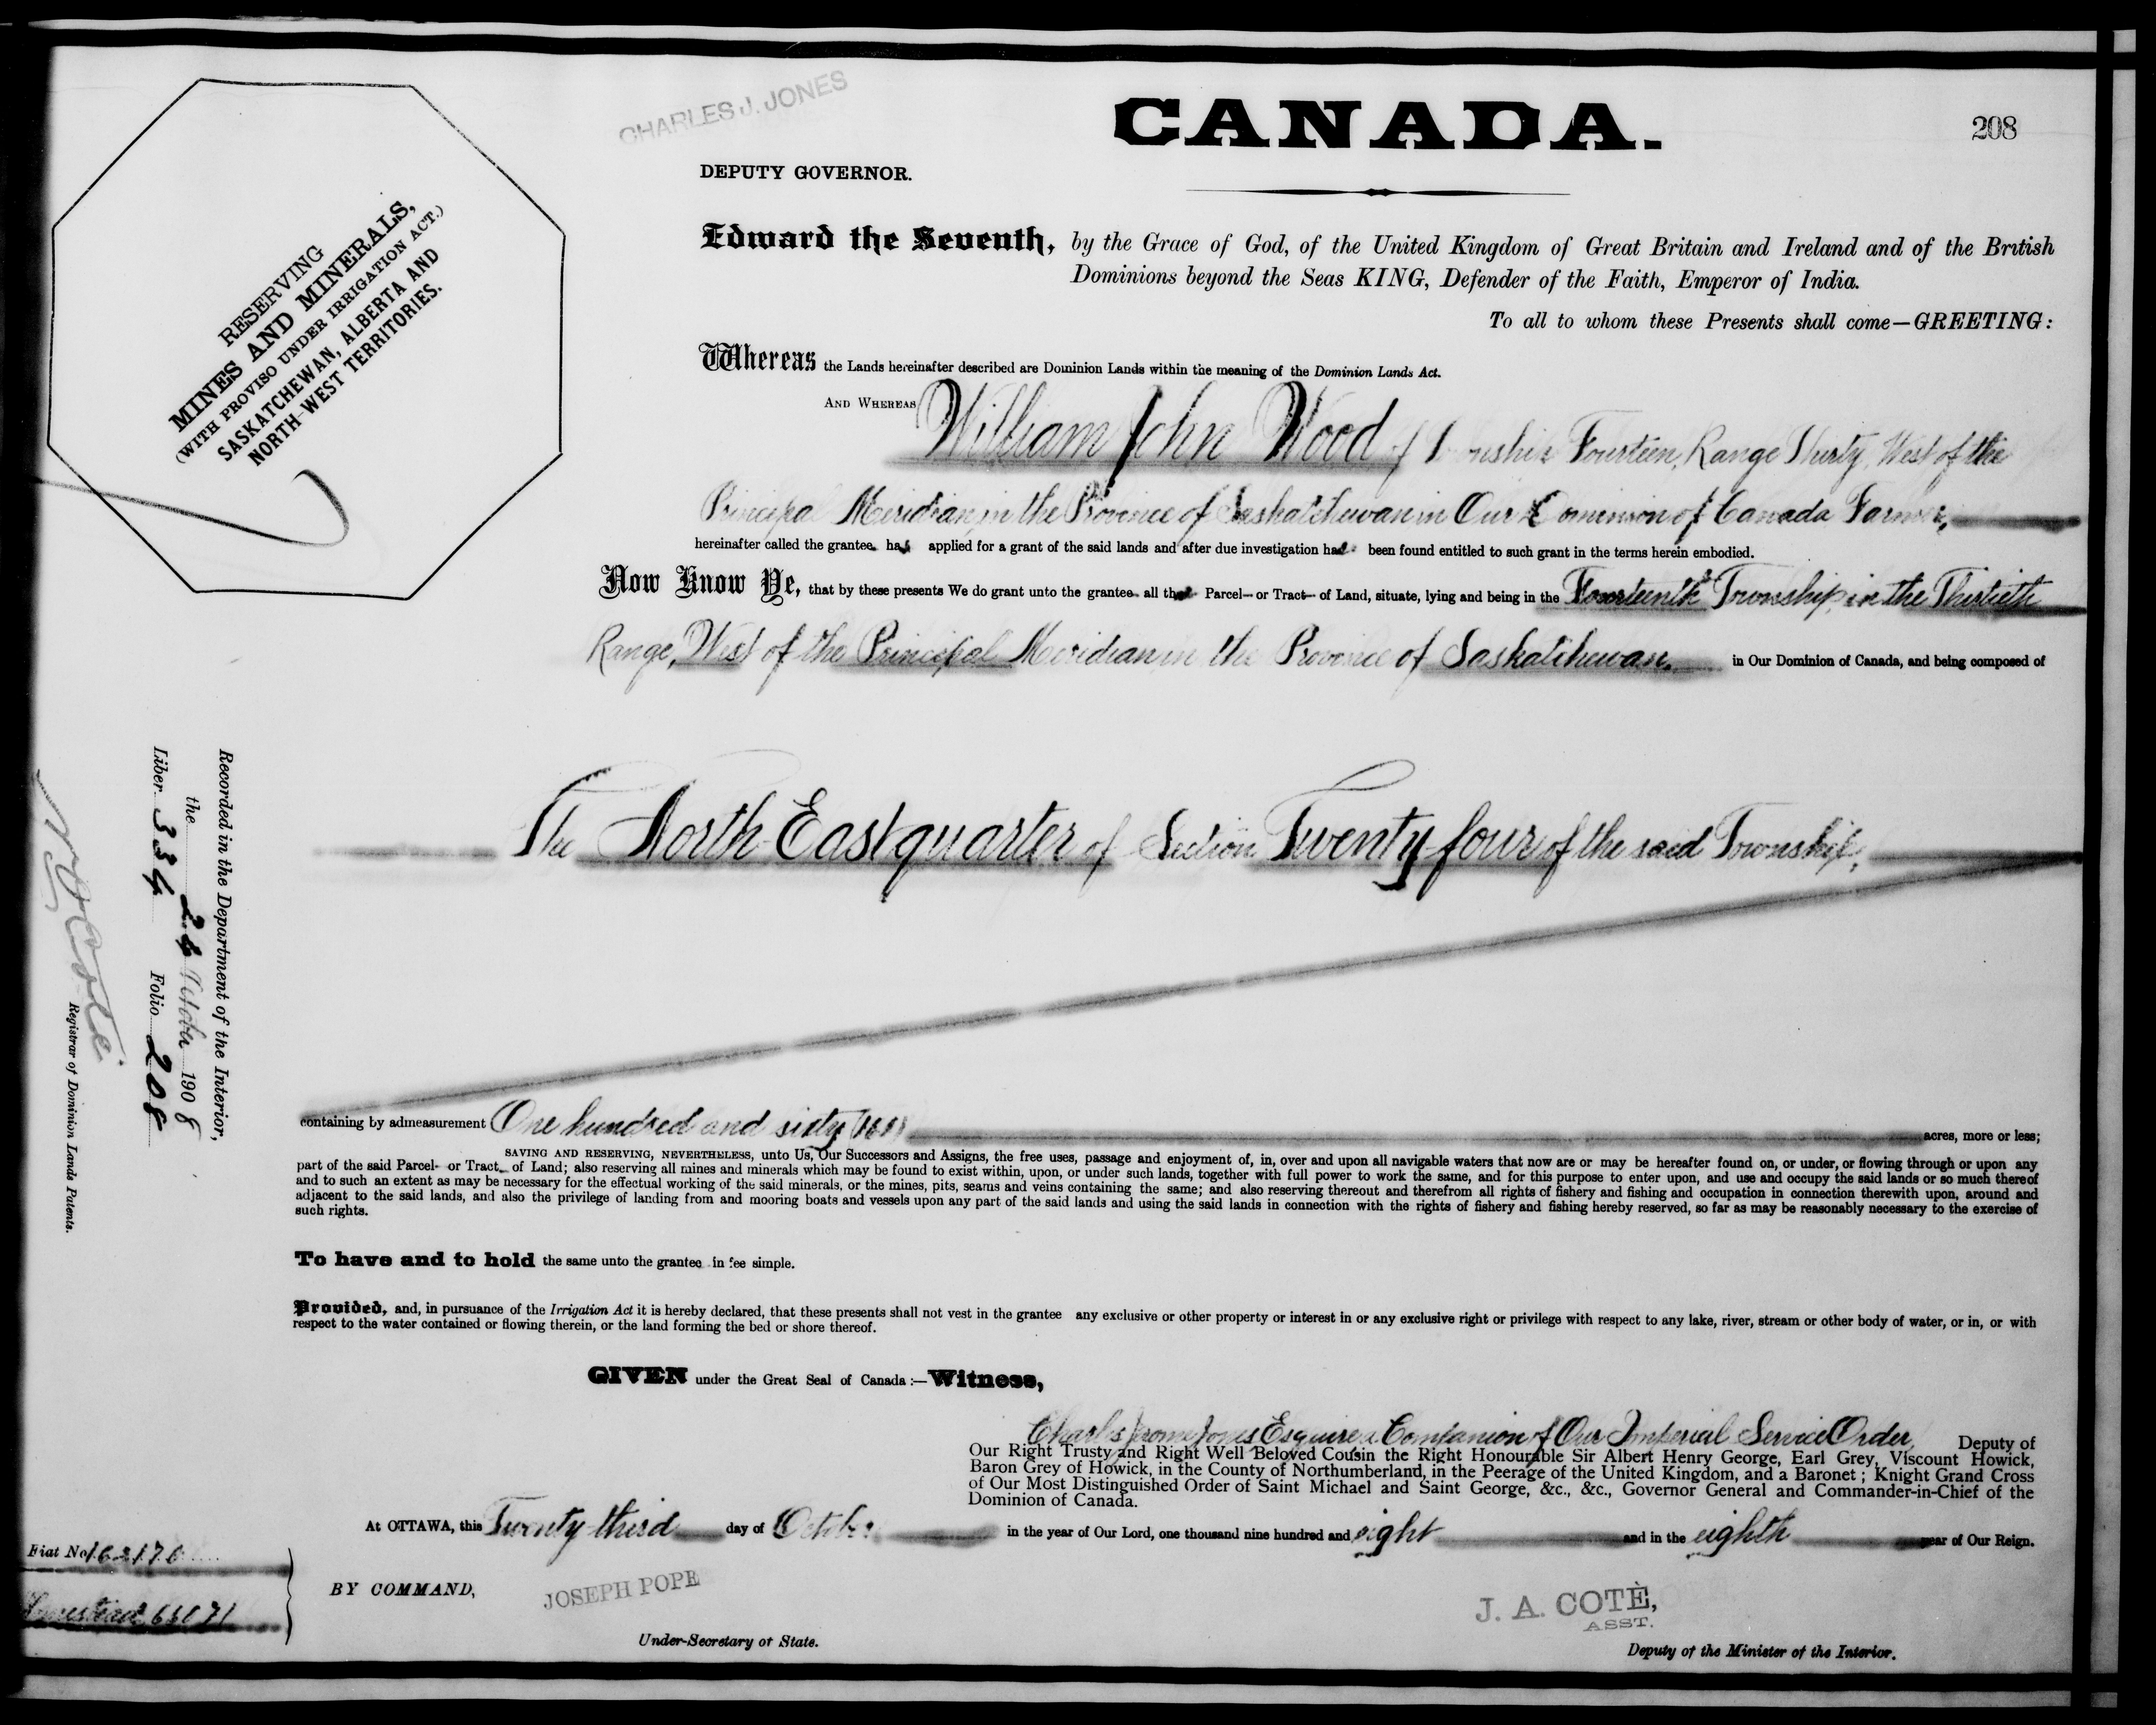 CHARLES J. JONES
CANADA.
208
DEPUTY GOVERNOR.
RESERVING
MINES AND MINERALS,
(WITH PROVISO UNDER IRRIGATION ACT.)
SASKATCHEWAN, ALBERTA AND
NORTH-WEST TERRITORIES.
Edward the Seventh, by the Grace of God, of the United Kingdom of Great Britain and Ireland and of the British
Dominions beyond the Seas KING, Defender of the Faith, Emperor of India.
To all to whom these Presents shall come—GREETING:
Whereas the Lands hereinafter described are Dominion Lands within the meaning of the Dominion Lands Act.
AND WHEREAS William John Wood of Township Fourteen, Range Thirty, West of the
Principal Meridian, in the Province of Saskatchewan in Our Dominion of Canada Farmer,
hereinafter called the grantee has applied for a grant of the said lands and after due investigation has been found entitled to such grant in the terms herein embodied.
Now Know Ye, that by these presents We do grant unto the grantee all that Parcel or Tract of Land, situate, lying and being in the Fourteenth Township, in the Thirtieth
Range, West of the Principal Meridian in the Province of Saskatchewan, in Our Dominion of Canada, and being composed of
The North East quarter of Section Twenty four of the said Township,
containing by admeasurement One hundred and sixty (160) acres, more or less;
SAVING AND RESERVING, NEVERTHELESS, unto Us, Our Successors and Assigns, the free uses, passage and enjoyment of, in, over and upon all navigable waters that now are or may be hereafter found on, or under, or flowing through or upon any
part of the said Parcel or Tract of Land; also reserving all mines and minerals which may be found to exist within, upon, or under such lands, together with full power to work the same, and for this purpose to enter upon, and use and occupy the said lands or so much thereof
and to such an extent as may be necessary for the effectual working of the said minerals, or the mines, pits, seams and veins containing the same; and also reserving thereout and therefrom all rights of fishery and fishing and occupation in connection therewith upon, around and
adjacent to the said lands, and also the privilege of landing from and mooring boats and vessels upon any part of the said lands and using the said lands in connection with the rights of fishery and fishing hereby reserved, so far as may be reasonably necessary to the exercise of
such rights.
To have and to hold the same unto the grantee in fee simple.
Provided, and, in pursuance of the Irrigation Act it is hereby declared, that these presents shall not vest in the grantee any exclusive or other property or interest in or any exclusive right or privilege with respect to any lake, river, stream or other body of water, or in, or with
respect to the water contained or flowing therein, or the land forming the bed or shore thereof.
GIVEN under the Great Seal of Canada:—Witness,
Charles Jerome Jones Esquire a Companion of Our Imperial Service Order, Deputy of
Our Right Trusty and Right Well Beloved Cousin the Right Honourable Sir Albert Henry George, Earl Grey, Viscount Howick,
Baron Grey of Howick, in the County of Northumberland, in the Peerage of the United Kingdom, and a Baronet; Knight Grand Cross
of Our Most Distinguished Order of Saint Michael and Saint George, &c., &c., Governor General and Commander-in-Chief of the
Dominion of Canada.
At OTTAWA, this Twenty third day of October in the year of Our Lord, one thousand nine hundred and eight and in the eighth year of Our Reign.
BY COMMAND,
JOSEPH POPE
Under-Secretary of State.
J. A. COTÈ,
ASST.
Deputy of the Minister of the Interior.
Recorded in the Department of the Interior,
the 24 October 1908
Liber 334 Folio 208
Coté
Registrar of Dominion Lands Patents.
Fiat No 162170
Homestead